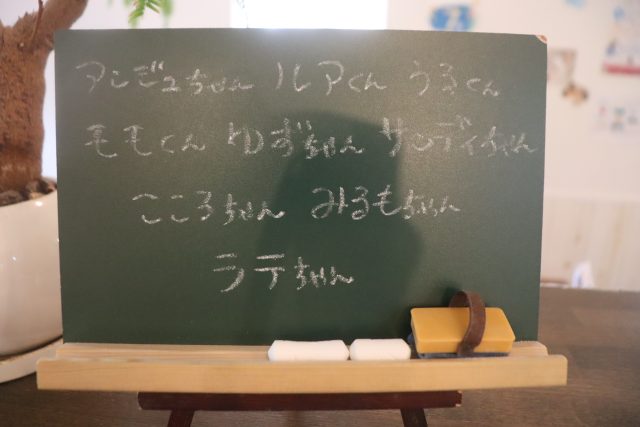 アンジュちゃん ルアくん うるくん
モモくん ゆずちゃん サンディちゃん
こころちゃん みるもちゃん
ラテちゃん